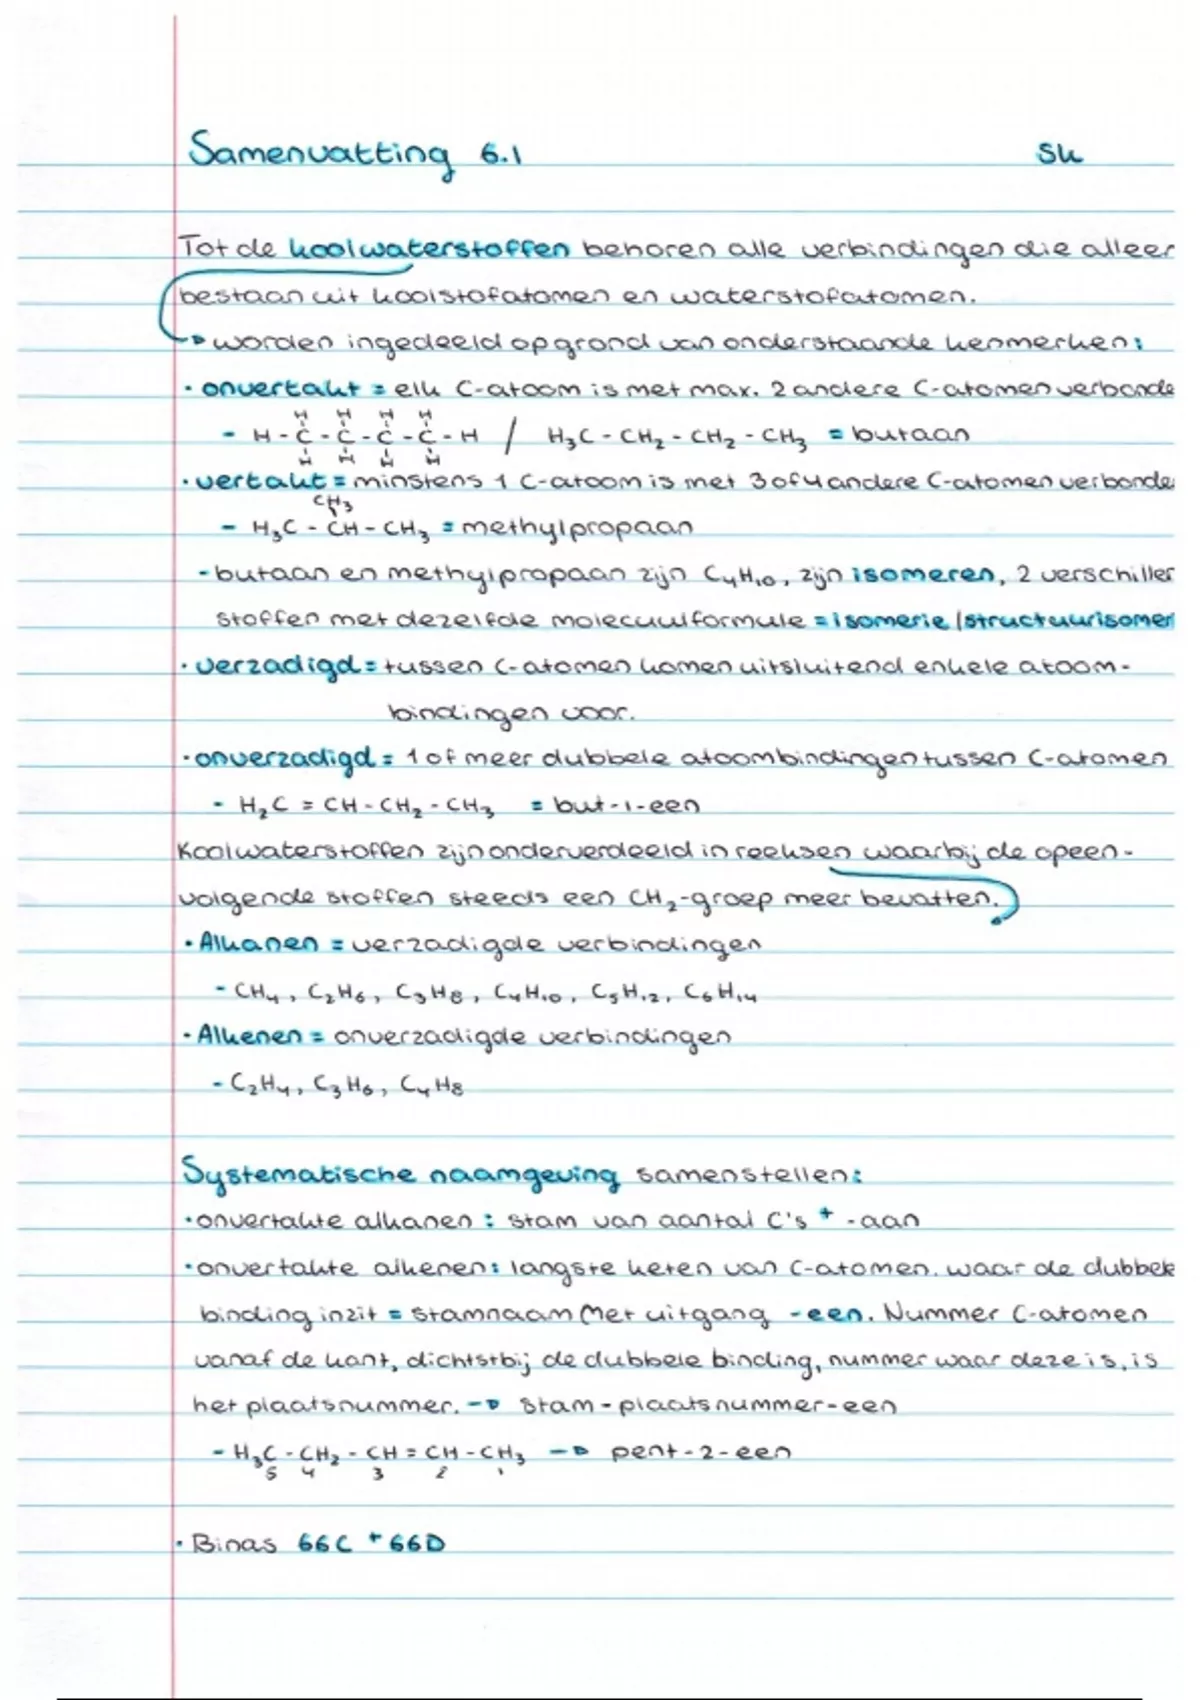 Samenvatting 6.1 Sk
Tot de koolwaterstoffen behoren alle verbindingen die alleen
bestaan uit koolstofatomen en waterstofatomen.
→ worden ingedeeld op grond van onderstaande kenmerken:
• onvertakt = elk C-atoom is met max. 2 andere C-atomen verbonde
H H H H
- H-C-C-C-C-H / H₃C-CH₂-CH₂-CH₃ = butaan
H H H H
• vertakt = minstens 1 C-atoom is met 3 of 4 andere C-atomen verbonde
CH₃
- H₃C-CH-CH₃ = methylpropaan
- butaan en methylpropaan zijn C₄H₁₀, zijn isomeren, 2 verschillen
stoffen met dezelfde molecuulformule = isomerie/structuurisomer
• verzadigd = tussen C-atomen komen uitsluitend enkele atoom-
bindingen voor.
• onverzadigd = 1 of meer dubbele atoombindingen tussen C-atomen
- H₂C=CH-CH₂-CH₃ = but-1-een
Koolwaterstoffen zijn onderverdeeld in reeksen waarbij de opeen-
volgende stoffen steeds een CH₂-groep meer bevatten.
• Alkanen = verzadigde verbindingen
- CH₄, C₂H₆, C₃H₈, C₄H₁₀, C₅H₁₂, C₆H₁₄
• Alkenen = onverzadigde verbindingen
- C₂H₄, C₃H₆, C₄H₈
Systematische naamgeving samenstellen:
• onvertakte alkanen: stam van aantal C's + -aan
• onvertakte alkenen: langste keten van C-atomen. waar de dubbele
binding in zit = stamnaam met uitgang -een. Nummer C-atomen
vanaf de kant, dichtstbij de dubbele binding, nummer waar deze is, is
het plaatsnummer. → stam-plaatsnummer-een
- H₃C-CH₂-CH=CH-CH₃ → pent-2-een
5 4 3 2 1
• Binas 66C + 66D